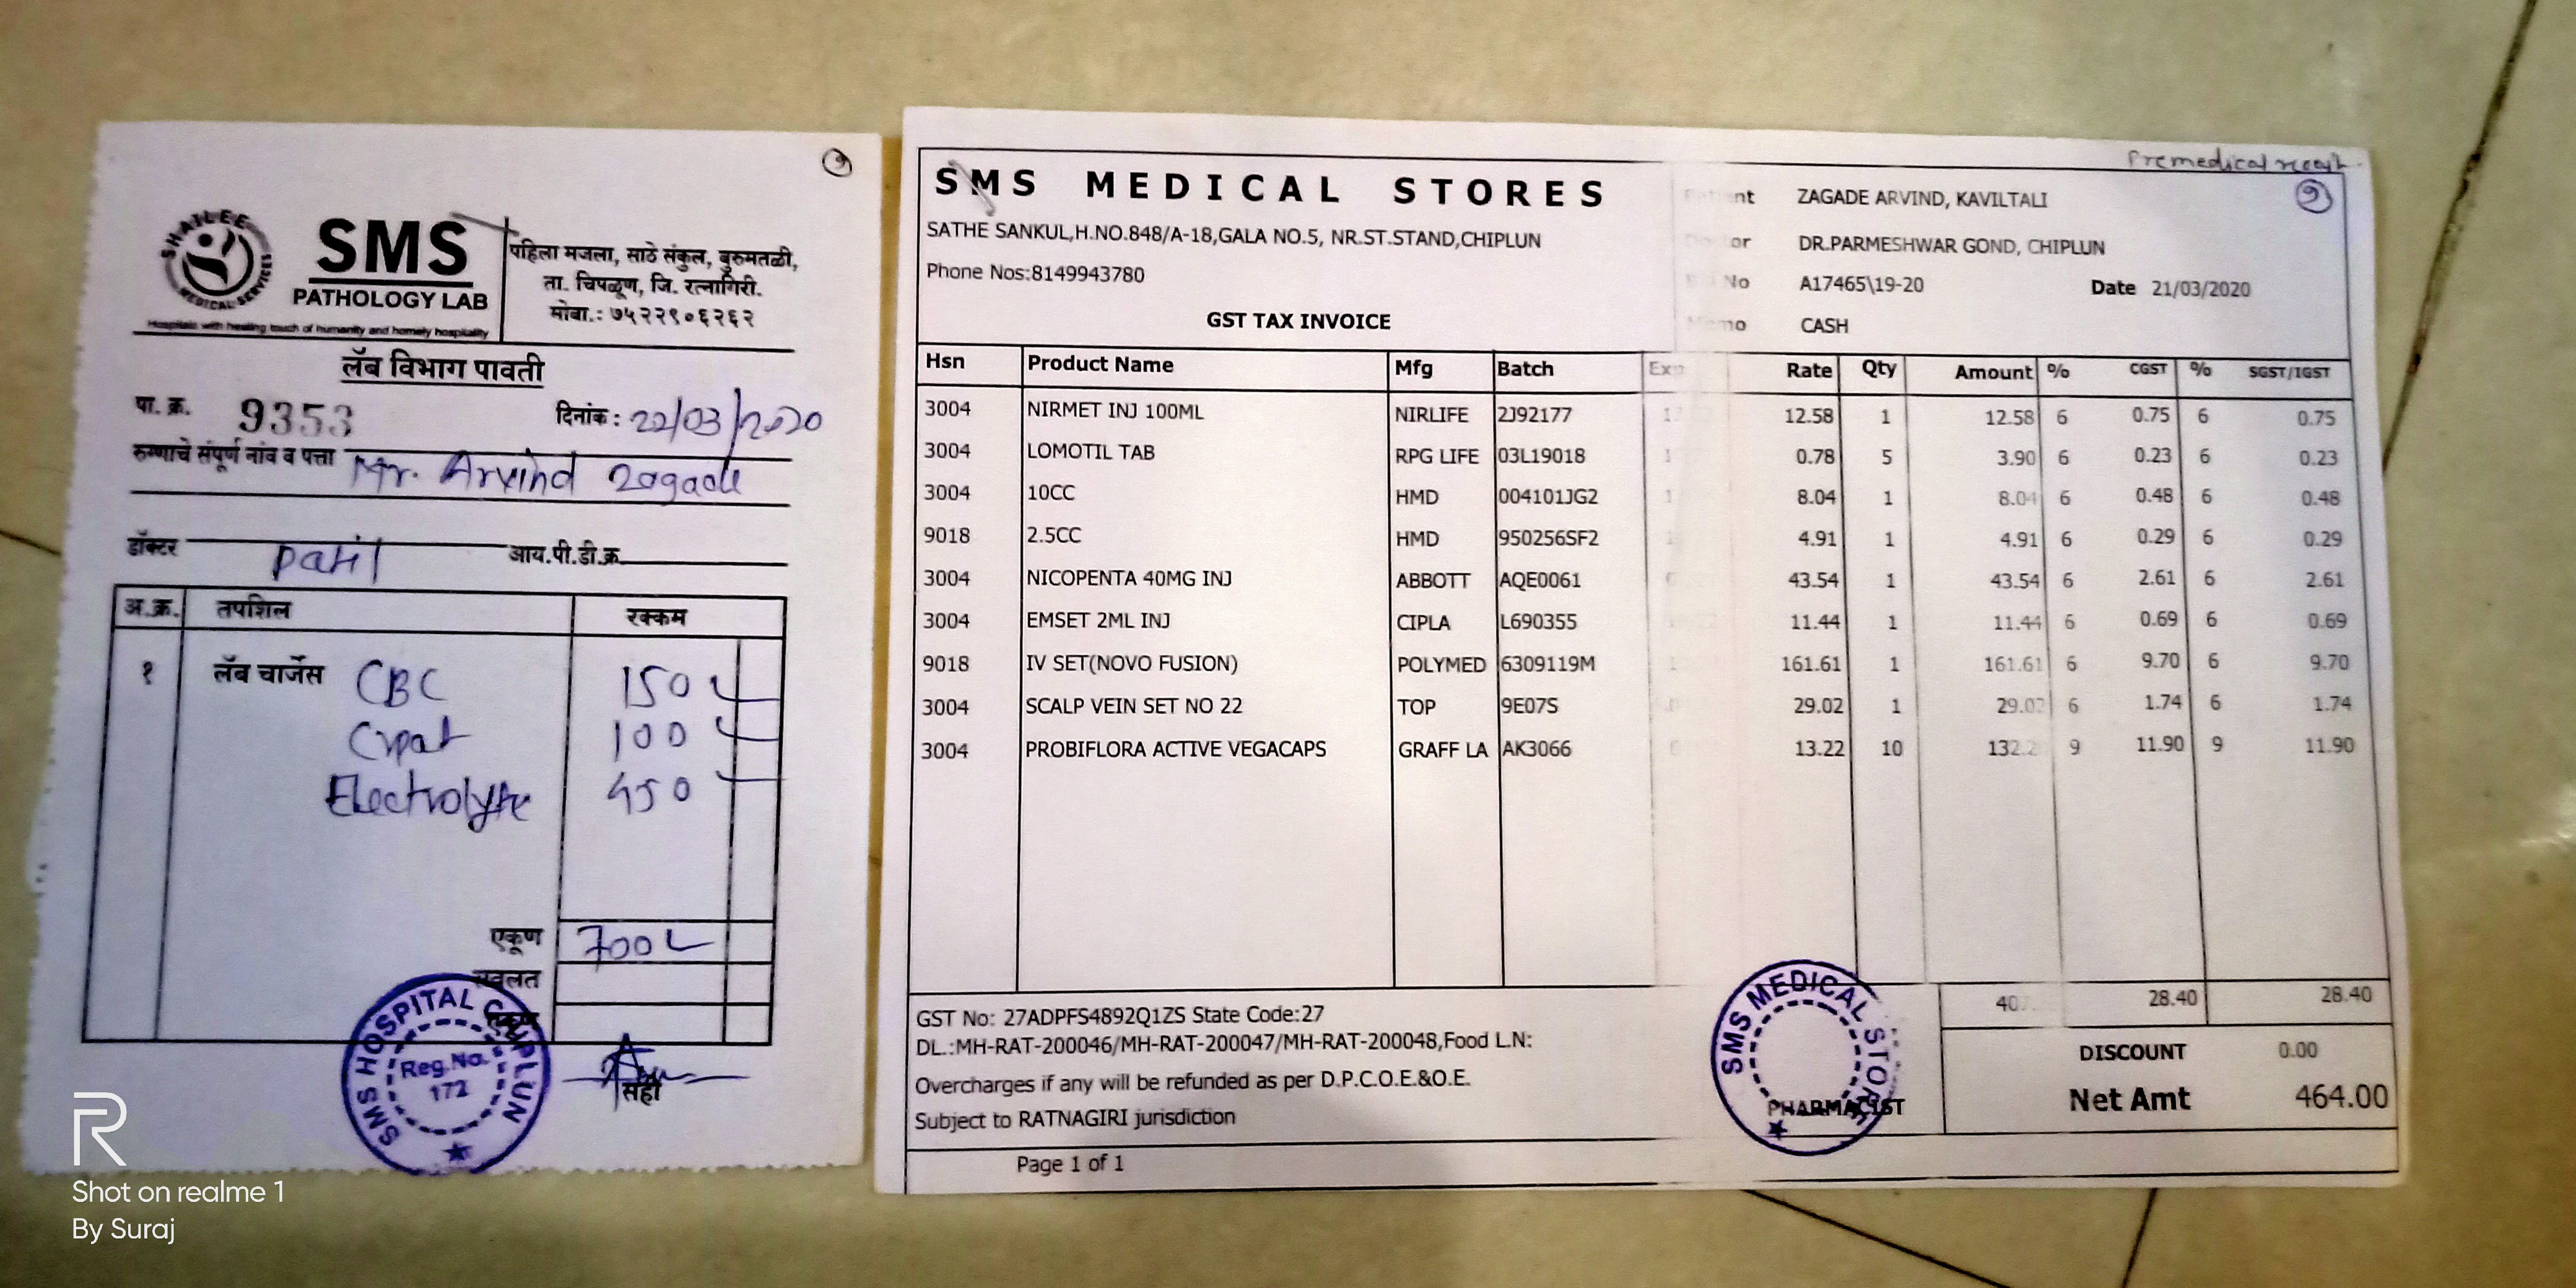 SHAILEE
MEDICAL SERVICES
SMS
PATHOLOGY LAB
Hospitals with healing touch of humanity and homely hospitality
पहिला मजला, साठे संकुल, बुरुमतळी,
ता. चिपळूण, जि. रत्नागिरी.
मोबा.: ७५२२९०६२६२
लॅब विभाग पावती
पा. क्र. 9353 दिनांक : 22/03/2020
रुग्णाचे संपूर्ण नांव व पत्ता Mr. Arvind Zagade
डॉक्टर Patil आय.पी.डी.क्र.
अ.क्र. तपशिल रक्कम
१ लॅब चार्जेस CBC 150
100
Electrolyte 450
एकूण 700
सवलत
एकूण
SMS HOSPITAL CHIPLUN
Reg.No.
172
सही
Premedical
SMS MEDICAL STORES
SATHE SANKUL,H.NO.848/A-18,GALA NO.5, NR.ST.STAND,CHIPLUN
Phone Nos:8149943780
GST TAX INVOICE
ZAGADE ARVIND, KAVILTALI
DR.PARMESHWAR GOND, CHIPLUN
No A17465\19-20 Date 21/03/2020
CASH
Hsn Product Name Mfg Batch Exp Rate Qty Amount % CGST % SGST/IGST
3004 NIRMET INJ 100ML NIRLIFE 2J92177 12.58 1 12.58 6 0.75 6 0.75
3004 LOMOTIL TAB RPG LIFE 03L19018 0.78 5 3.90 6 0.23 6 0.23
3004 10CC HMD 004101JG2 8.04 1 8.04 6 0.48 6 0.48
9018 2.5CC HMD 950256SF2 4.91 1 4.91 6 0.29 6 0.29
3004 NICOPENTA 40MG INJ ABBOTT AQE0061 43.54 1 43.54 6 2.61 6 2.61
3004 EMSET 2ML INJ CIPLA L690355 11.44 1 11.44 6 0.69 6 0.69
9018 IV SET(NOVO FUSION) POLYMED 6309119M 161.61 1 161.61 6 9.70 6 9.70
3004 SCALP VEIN SET NO 22 TOP 9E07S 29.02 1 29.02 6 1.74 6 1.74
3004 PROBIFLORA ACTIVE VEGACAPS GRAFF LA AK3066 13.22 10 9 11.90 9 11.90
28.40 28.40
GST No: 27ADPFS4892Q1ZS State Code:27
DL.:MH-RAT-200046/MH-RAT-200047/MH-RAT-200048,Food L.N:
Overcharges if any will be refunded as per D.P.C.O.E.&O.E.
Subject to RATNAGIRI jurisdiction
SMS MEDICAL STORES
PHARMACIST
DISCOUNT 0.00
Net Amt 464.00
Page 1 of 1
R
Shot on realme 1
By Suraj